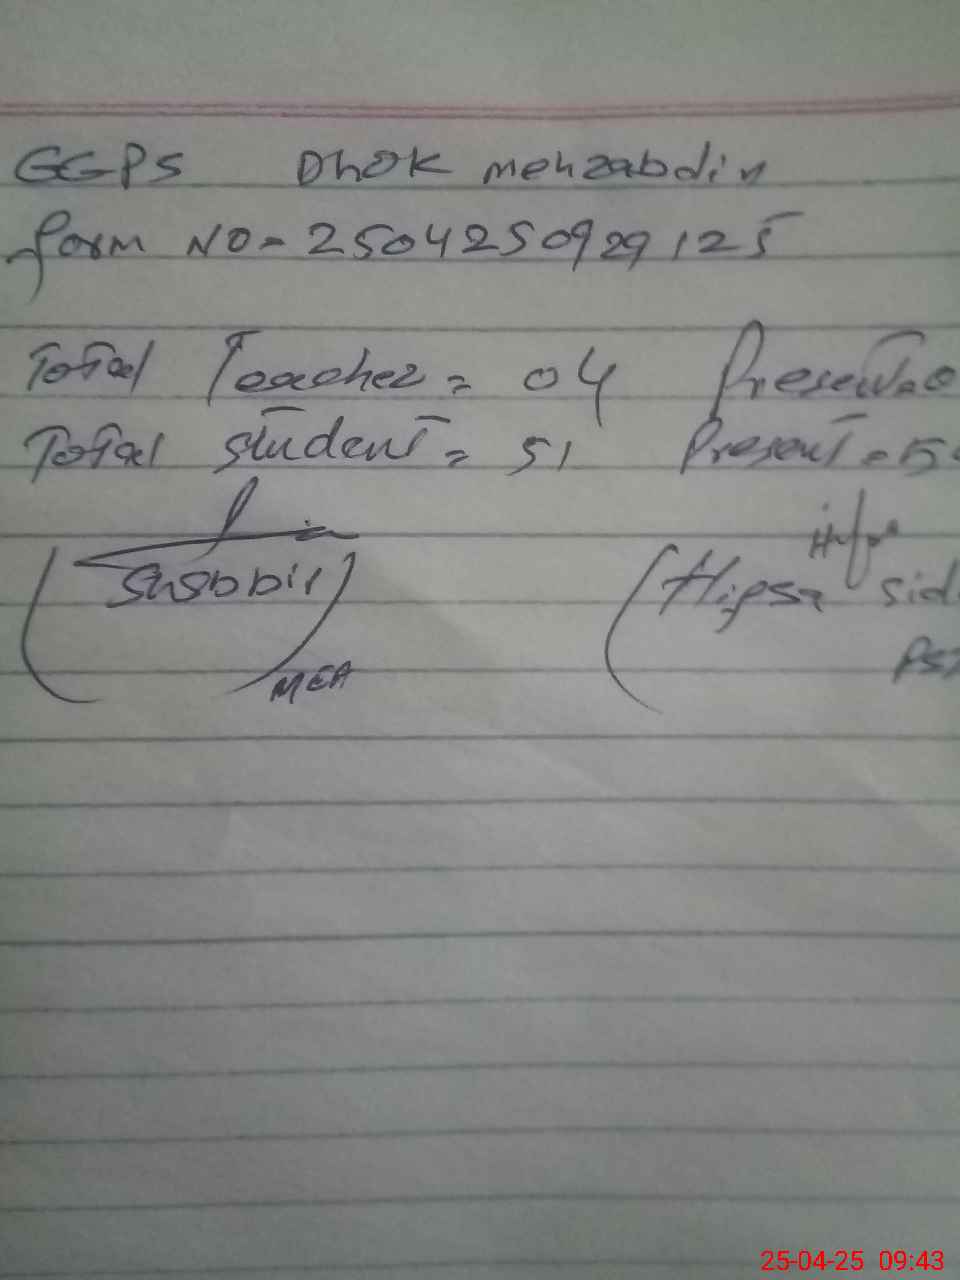 GGPS Dhok mehzabdin
form NO = 2504250929125
Total Teacher = 04 Present = 0
Total student = 51 Present = 5
Shabbir
MEA
PS
25-04-25 09:43